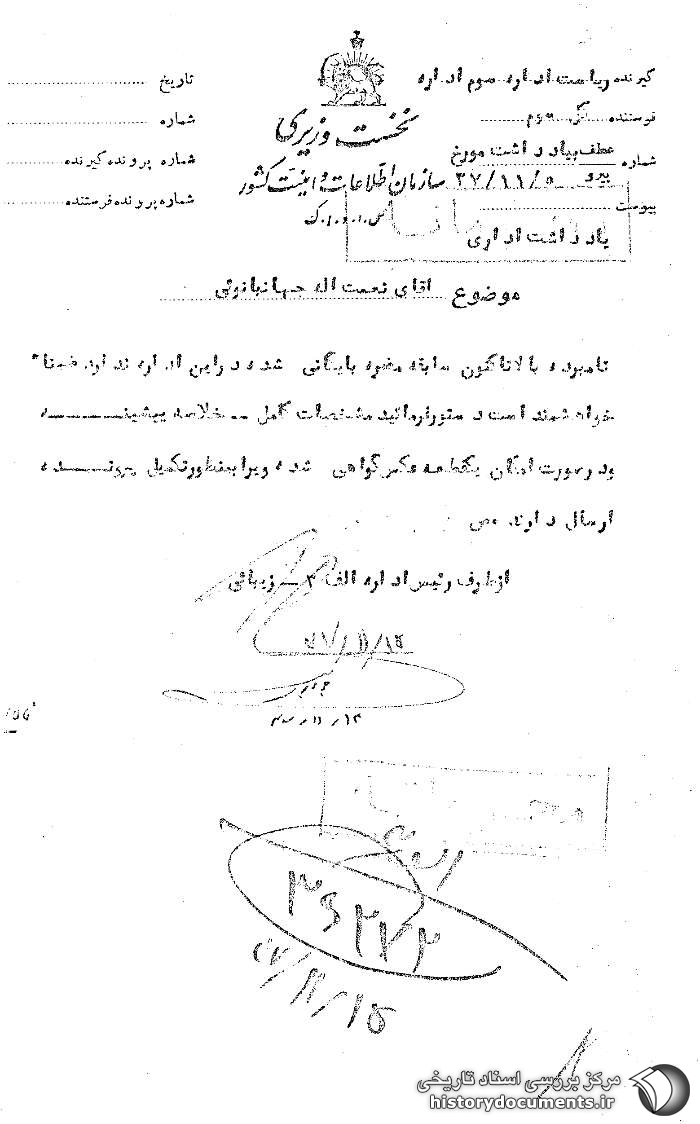 گیرنده ریاست اداره سوم اداره
فرستنده
شماره عطف بیادداشت مورخ
۳۷/۱۱/۵ پیرو
پیوست
تاریخ
شماره
شماره پرونده گیرنده
شماره پرونده فرستنده
نخست وزیری
سازمان اطلاعات و امنیت کشور
س.ا.و.ا.ک
یادداشت اداری
موضوع آقای نعمت اله جهانبانوئی
نامبرده بالا تاکنون سابقه مضره بایگانی شده در این اداره ندارد ضمناً
خواهشمند است دستور فرمائید مشخصات کامل ــ خلاصه پیشینه
و در صورت امکان یکقطعه عکس گواهی شده ویرا بمنظور تکمیل پرونده
ارسال دارند ص
از طرف رئیس اداره الف ۳ ــ زیبائی
۳۷/۱۱/۱۲
۳۷/۱۱/۱۵
مرکز بررسی اسناد تاریخی
historydocuments.ir